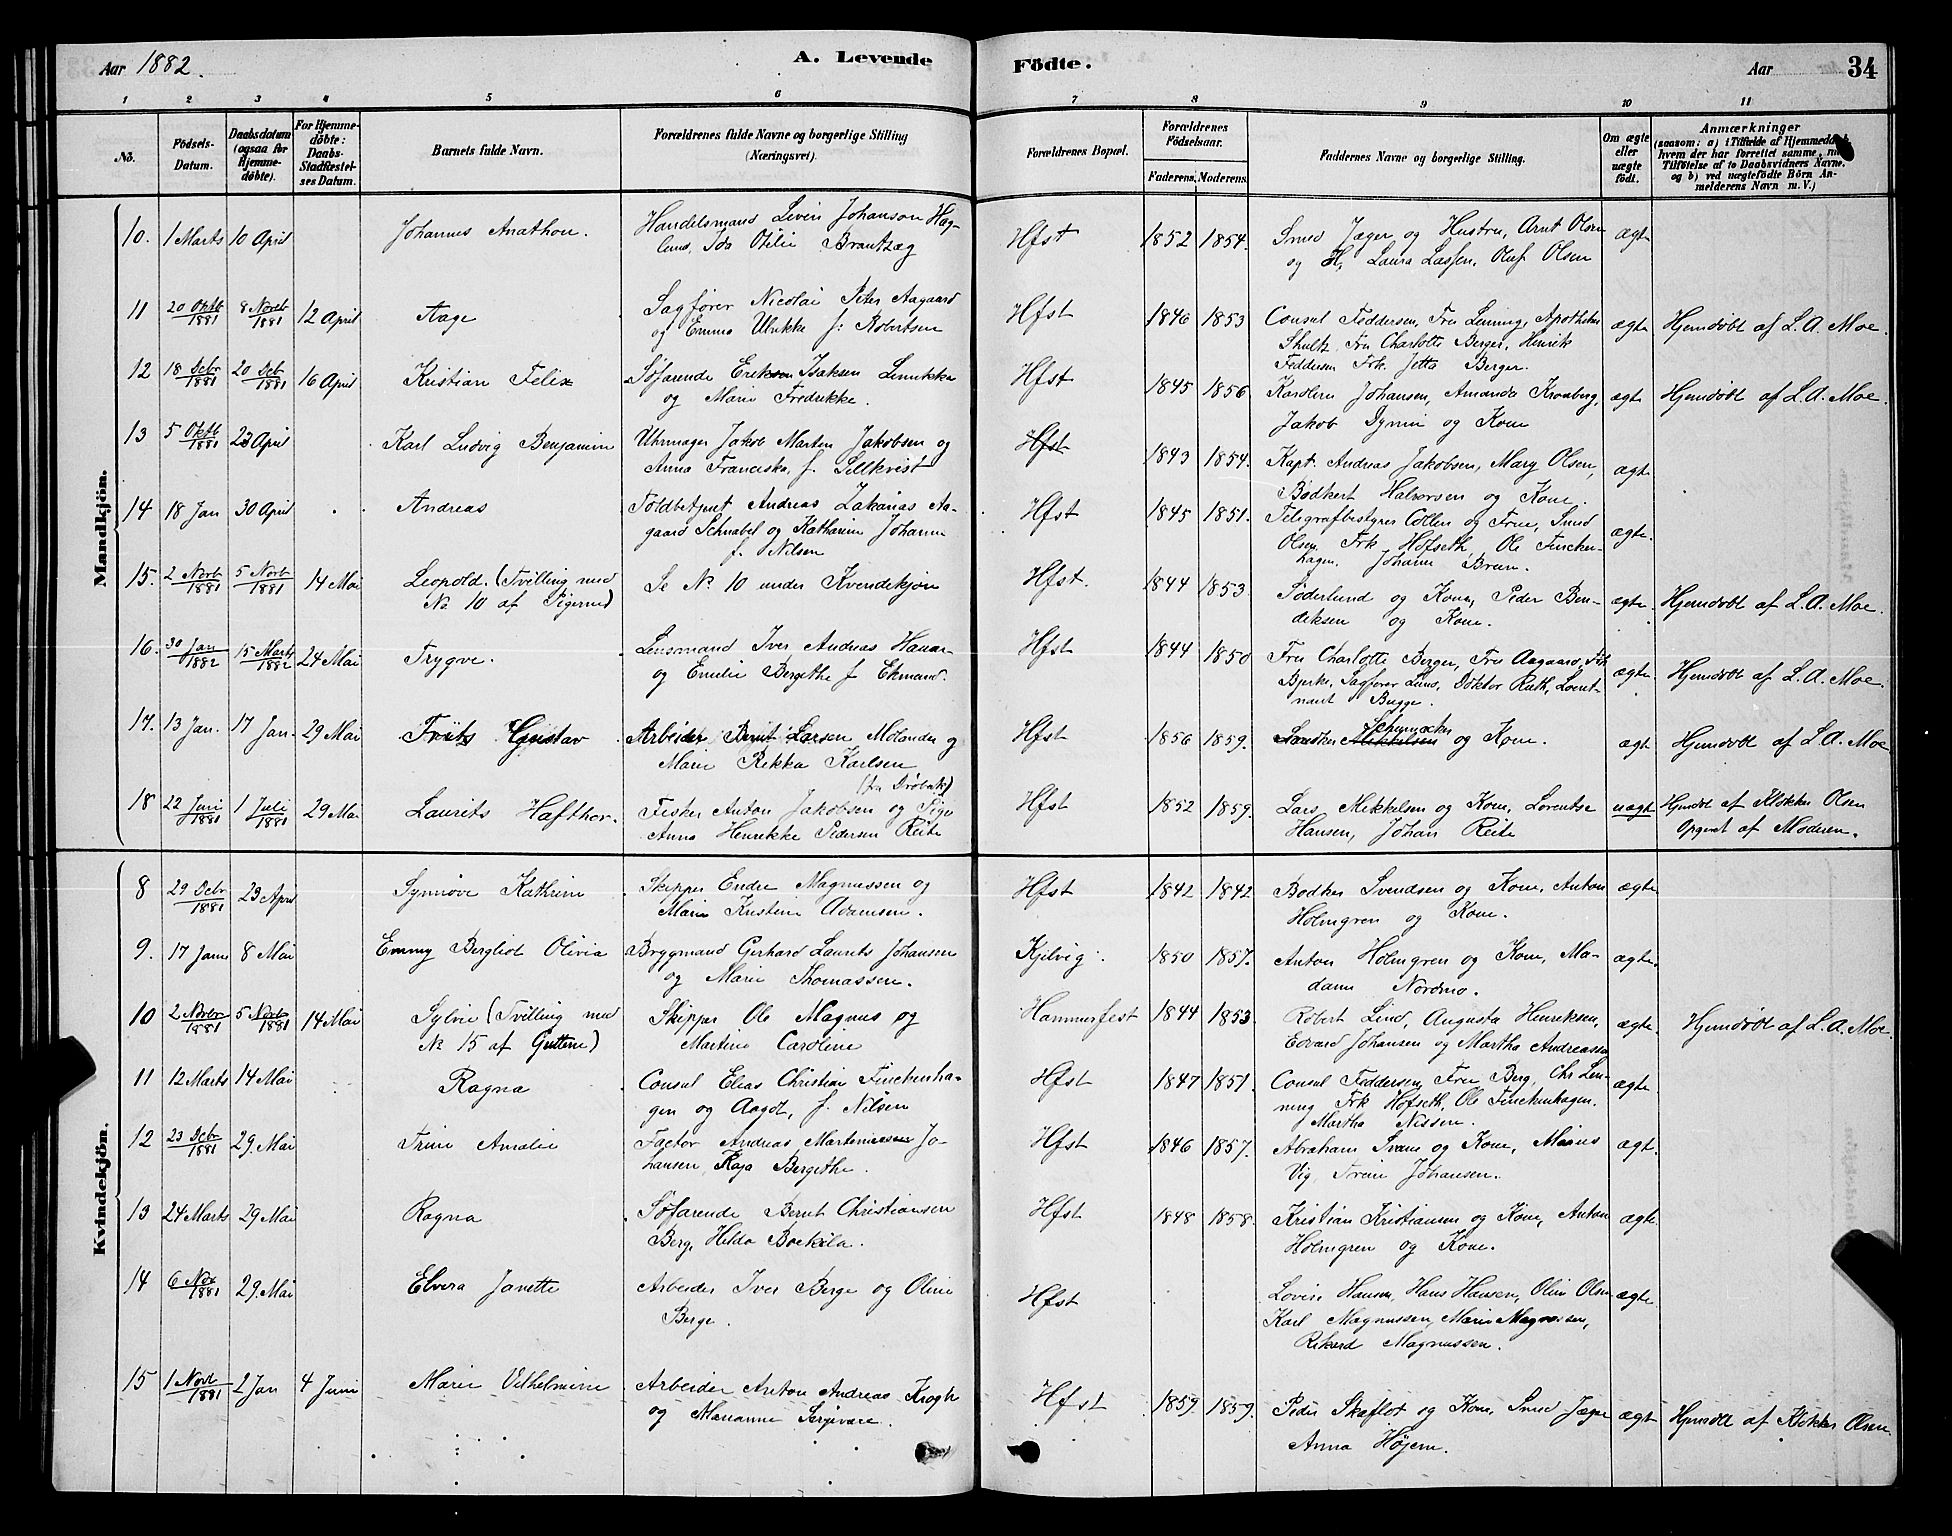 Aar 1882.
A. Levende
Födte.
Aar
34
1 2 3 4 5 6 7 8 9 10 11
No.
Födsels-Datum.
Daabsdatum (ogsaa for Hjemme-döbte).
For Hjemme-döbte: Daabs-Stadfæstel-ses Datum.
Barnets fulde Navn.
Forældrenes fulde Navne og borgerlige Stilling (Næringsvei).
Forældrenes Bopæl.
Forældrenes Födselsaar.
Faderens. Moderens.
Faddernes Navne og borgerlige Stilling.
Om ægte eller uægte födt.
Anmærkninger
(saasom: a) i Tilfælde af Hjemmedaab,
hvem der har forrettet samme, m
Tilföielse af to Daabsvidners Navne,
og b) ved uægtefödte Börn An-
melderens Navn m. V.)
Mandkjön.
10. 1 Marts 10 April Johannes Anathon. Handelsmand Johanson Hag-
lund, Ida Otilie Brantzæg Hfst 1852 1854. Smed Jæger og Hustru, Arnt Olsen
og H, Laura Lassen, Oluf Olsen ægte
11 20 Oktb 1881 8 Novb 1881 12 April Aage Sagfører Nicolai Peter Aagaard
og Emma Ulrikke f: Robertsen Hfst 1846 1853 Consul Feddersen, Fru Lenning, Apotheker
Shultz, Fru Charlotte Berger, Henrik
Feddersen Frk. Jetta Berger. ægte Hjemdøbt af L. A. Moe.
12 18 Decbr 1881 20 Dcb 1881 16 April Kristian Felix Søfarende Isaksen
og Marie Fredrikke. Hfst 1845 1856 Karoline Johansen, Amanda Kronberg,
Jakob og Kone ægte Hjemdøbt af L. A. Moe.
13 5 Oktb 1881 23 April Karl Ludvig Benjamin Uhrmager Jakob Martin Jakobsen og
Anna Franciska, f. Hfst 1843 1854. Kapt. Andreas Jakobsen, Mary Olsen,
Bødkert Halvorsen og Kone. ægte
14 18 Jan 30 April Andreas Toldbetjent Andreas Zakarias Aa-
gaard Schnabel og Katharine Johanne
f. Nilsen Hfst 1845 1851. Telegrafbestyrer Collin og Frue, Smed
Olsen, Frk Hofseth, Ole Fincken-
hagen, Johanne Bruun. ægte.
15. 2 Novb 1881 5 Novb 1881 14 Mai Leopold. (Tvilling med
No. 10 af Pigerne) Se No. 10 under Kvindekjøn Hfst. 1844 1853. Søderlund og Kone, Peder Ben-
diksen og Kone. ægte. Hjemdøbt af L. A. Moe.
16. 30 Jan 1882 15 Marts 1882 24 Mai Trygve. Lensmand Iver Andreas
og Emilie Bergithe f Ekmand. Hfst 1844 1850 Fru Charlotte Berger, Fru Aagaard, Frk
Bjerke, Sagfører Lund, Doktor Ruth, Loeut-
nant Bugge. ægte. Hjemdøbt af L. A. Moe.
17. 13 Jan. 17 Jan. 29 Mai Frits Gustav Arbeider Larsen Molander og
Marie Rikka Karlsen
(fra Drøbak) Hfst 1856 1859. Mikkelsen og Kone. ægte Hjemdøbt af L. A. Moe
18 22 Juni 1881 1 Juli 1881 29 Mai Laurits Hafthor. Fisker Anton Jakobsen og Pige
Anna Henrikke Pedersen Reite Hfst 1852 1859. Lars Mikkelsen og Kone, Lorentse
Hansen, Johan Reite uægte Hjemdøbt af Klokker Olsen
Opgivet af Moderen.
Kvindekjön.
8 29 Dcbr 1881 23 April Synnøve Kathrine Skipper Endre Magnussen og
Marie Kristine Adamsen. Hfst 1842 1842 Bødker Svendsen og Kone, Anton
Holmgren og Kone. ægte
9. 17 Janu 8 Mai Emmy Bergliot Olivia Brygmand Gerhard Laurits Johansen
og Marie Thomassen. Kjelvig. 1850 1857. Anton Holmgren og Kone, Ma-
dame Nordmo. ægte.
10 2 Novbr 1881 5 Novb 1881 14 Mai Sylvie (Tvilling med
No 15 af Guttene) Skipper Ole Magnus og
Martine Caroline Hammerfest 1844 1853. Robert Lind, Augusta Henriksen,
Edvard Johansen og Martha Andreassen ægte. Hjemdøbt af L. A. Moe
11 12 Marts 14 Mai Ragna Consul Elias Christian Finckenha-
gen og Aagot, f. Nilsen Hfst 1847 1851. Consul Feddersen, Fru Berg, Chr Len-
ning Frk Hofseth, Ole Finckenhagen.
Martha Nissen. ægte
12 23 Dcbr 1881 29. Mai Trine Amalie Factor Andreas Jo-
hansen, Kaja Bergithe. Hfst 1846 1857. Abraham Svane og Kone,
Vig, Trine Johansen. ægte.
13 24 Marts 29 Mai Ragna Søfarende Bernt Christiansen
Berg, Hilda Hfst 1848 1858. Kristian Kristiansen og Kone, Anton
Holmgren og Kone. ægte.
14 6 Nov 1881 29. Mai Elvera Janette Arbeider Iver Berge og Oline
Berge. Hfst Lovise Hansen, Hans Hansen, Oline Olsen
Karl Magnussen, Marie Magnussen,
Rikard Magnussen. ægte
15 1 Novb 1881 2 Jan 4 Juni Marie Vilhelmine Arbeider Anton Andreas Krogh
og Marianne Hfst 1859. 1859. Peder Skaflot og Kone, Smed Jæger
Anna Højem. ægte Hjemdøbt af Klokker Olsen